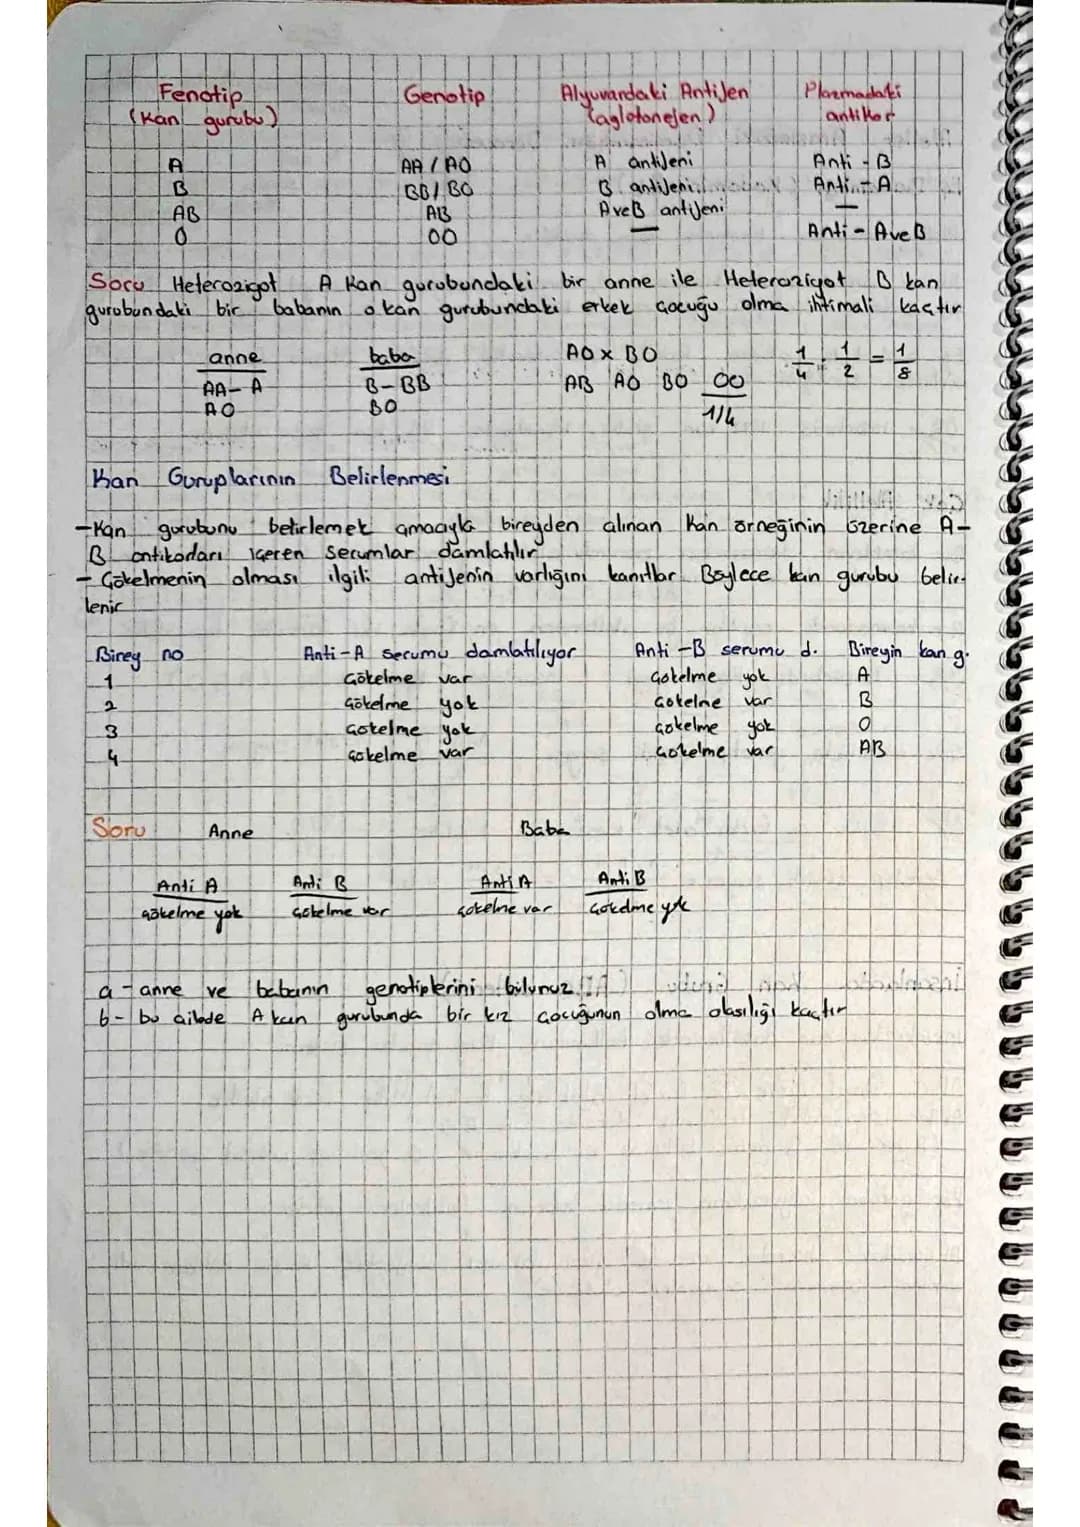 Fenotip Genotip Alyuvardaki Antijen Plazmadaki
(Kan gurubu) (aglotonejen) antikor
A AA / AO A antijeni Anti - B
B BB / BO B antijeni Anti - A
AB AB AveB antijeni —
O OO — Anti - AveB
Soru Heterozigot A Kan gurubundaki bir anne ile Heterozigot B kan
gurubundaki bir babanın o kan gurubundaki erkek çocuğu olma ihtimali kaçtır
anne baba AO x BO 1/4 . 1/2 = 1/8
AA - A B - BB AB AO BO OO
AO BO 1/4
Kan Guruplarının Belirlenmesi
- Kan gurubunu belirlemek amacıyla bireyden alınan kan örneğinin üzerine A-
B antikorları içeren serumlar damlatılır
- Çökelmenin olması ilgili antijenin varlığını kanıtlar Böylece kan gurubu belir-
lenir
Birey no Anti-A serumu damlatılıyor Anti-B serumu d. Bireyin kan g.
1 Çökelme var Çökelme yok A
2 Çökelme yok Çökelme var B
3 Çökelme yok Çökelme yok O
4 Çökelme var Çökelme var AB
Soru Anne Baba
Anti A Anti B Anti A Anti B
çökelme yok çökelme var çökelme var çökelme yok
a - anne ve babanın genotiplerini bulunuz
b - bu ailede A kan gurubunda bir kız çocuğunun olma olasılığı kaçtır